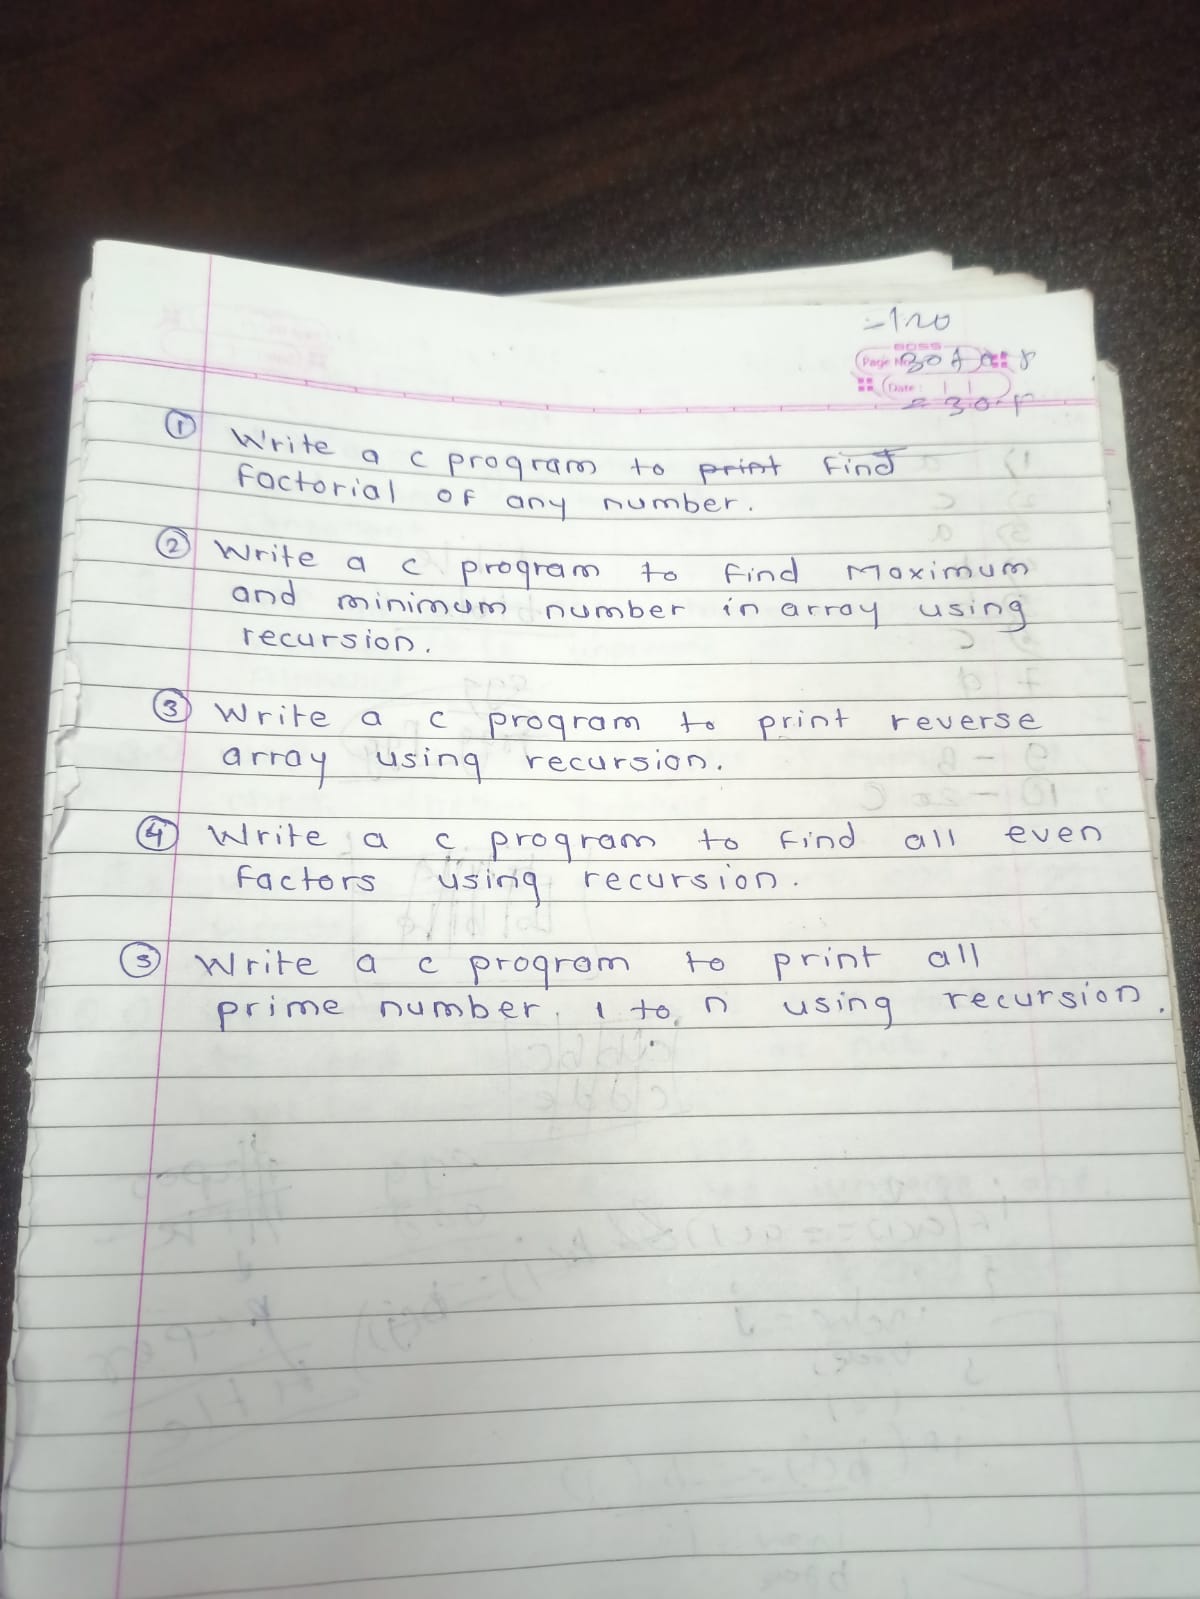 =120
BOSS
Page No
Date:
① Write a c program to print find
factorial of any number.
② Write a c program to find Maximum
and minimum number in array using
recursion.
③ Write a c program to print reverse
array using recursion.
④ Write a c program to find all even
factors using recursion.
⑤ Write a c program to print all
prime number. 1 to n using recursion.